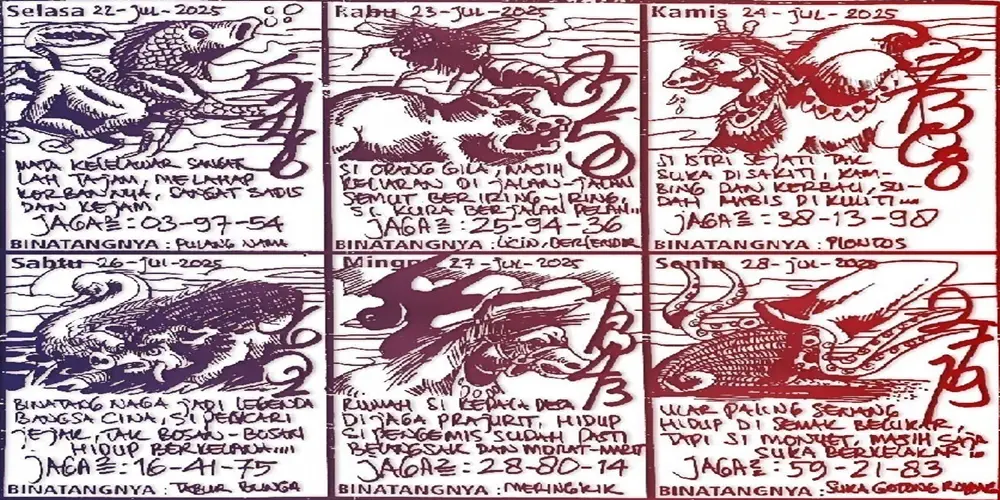 Selasa 22-JUL-2025
MATA KELELAWAR SANGAT
LAH TAJAM, MELAHAP
KORBANNYA, SANGAT SADIS
DAN KEJAM
JAGA2 : 03-97-54
BINATANGNYA : PULANG NAMA
Rabu 23-JUL-2025
SI ORANG GILA, MASIH
KELIARAN DI JALAN-JALAN
SEMUT BERIRING-IRING,
SI KURA BERJALAN PELAN...
JAGA2 : 25-94-36
BINATANGNYA : LICIN, BERLENDIR
Kamis 24-JUL-2025
SI ISTRI SEJATI TAK
SUKA DISAKITI, KAM-
BING DAN KERBAU, SU-
DAH HABIS DI KULITI...
JAGA2 : 38-13-98
BINATANGNYA : PLONTOS
Sabtu 26-JUL-2025
BINATANG NAGA JADI LEGENDA
BANGSA CINA, SI PENCARI
JEJAK, TAK BOSAN-BOSAN
HIDUP BERKELANA....
JAGA2 : 16-41-75
BINATANGNYA : TABUR BUNGA
Minggu 27-JUL-2025
RUMAH SI KEPALA DESA
DIJAGA PRAJURIT, HIDUP
SI PENGEMIS SUDAH PASTI
BELANGSAK DAN MORAT-MARIT
JAGA2 : 28-80-14
BINATANGNYA : MERINGKIK
Senin 28-JUL-2025
ULAR PALING SENANG
HIDUP DI SEMAK BELUKAR,
TAPI SI MONYET, MASIH SAJA
SUKA BERKELAKAR
JAGA2 : 59-21-83
BINATANGNYA : SUKA GOTONG ROYONG